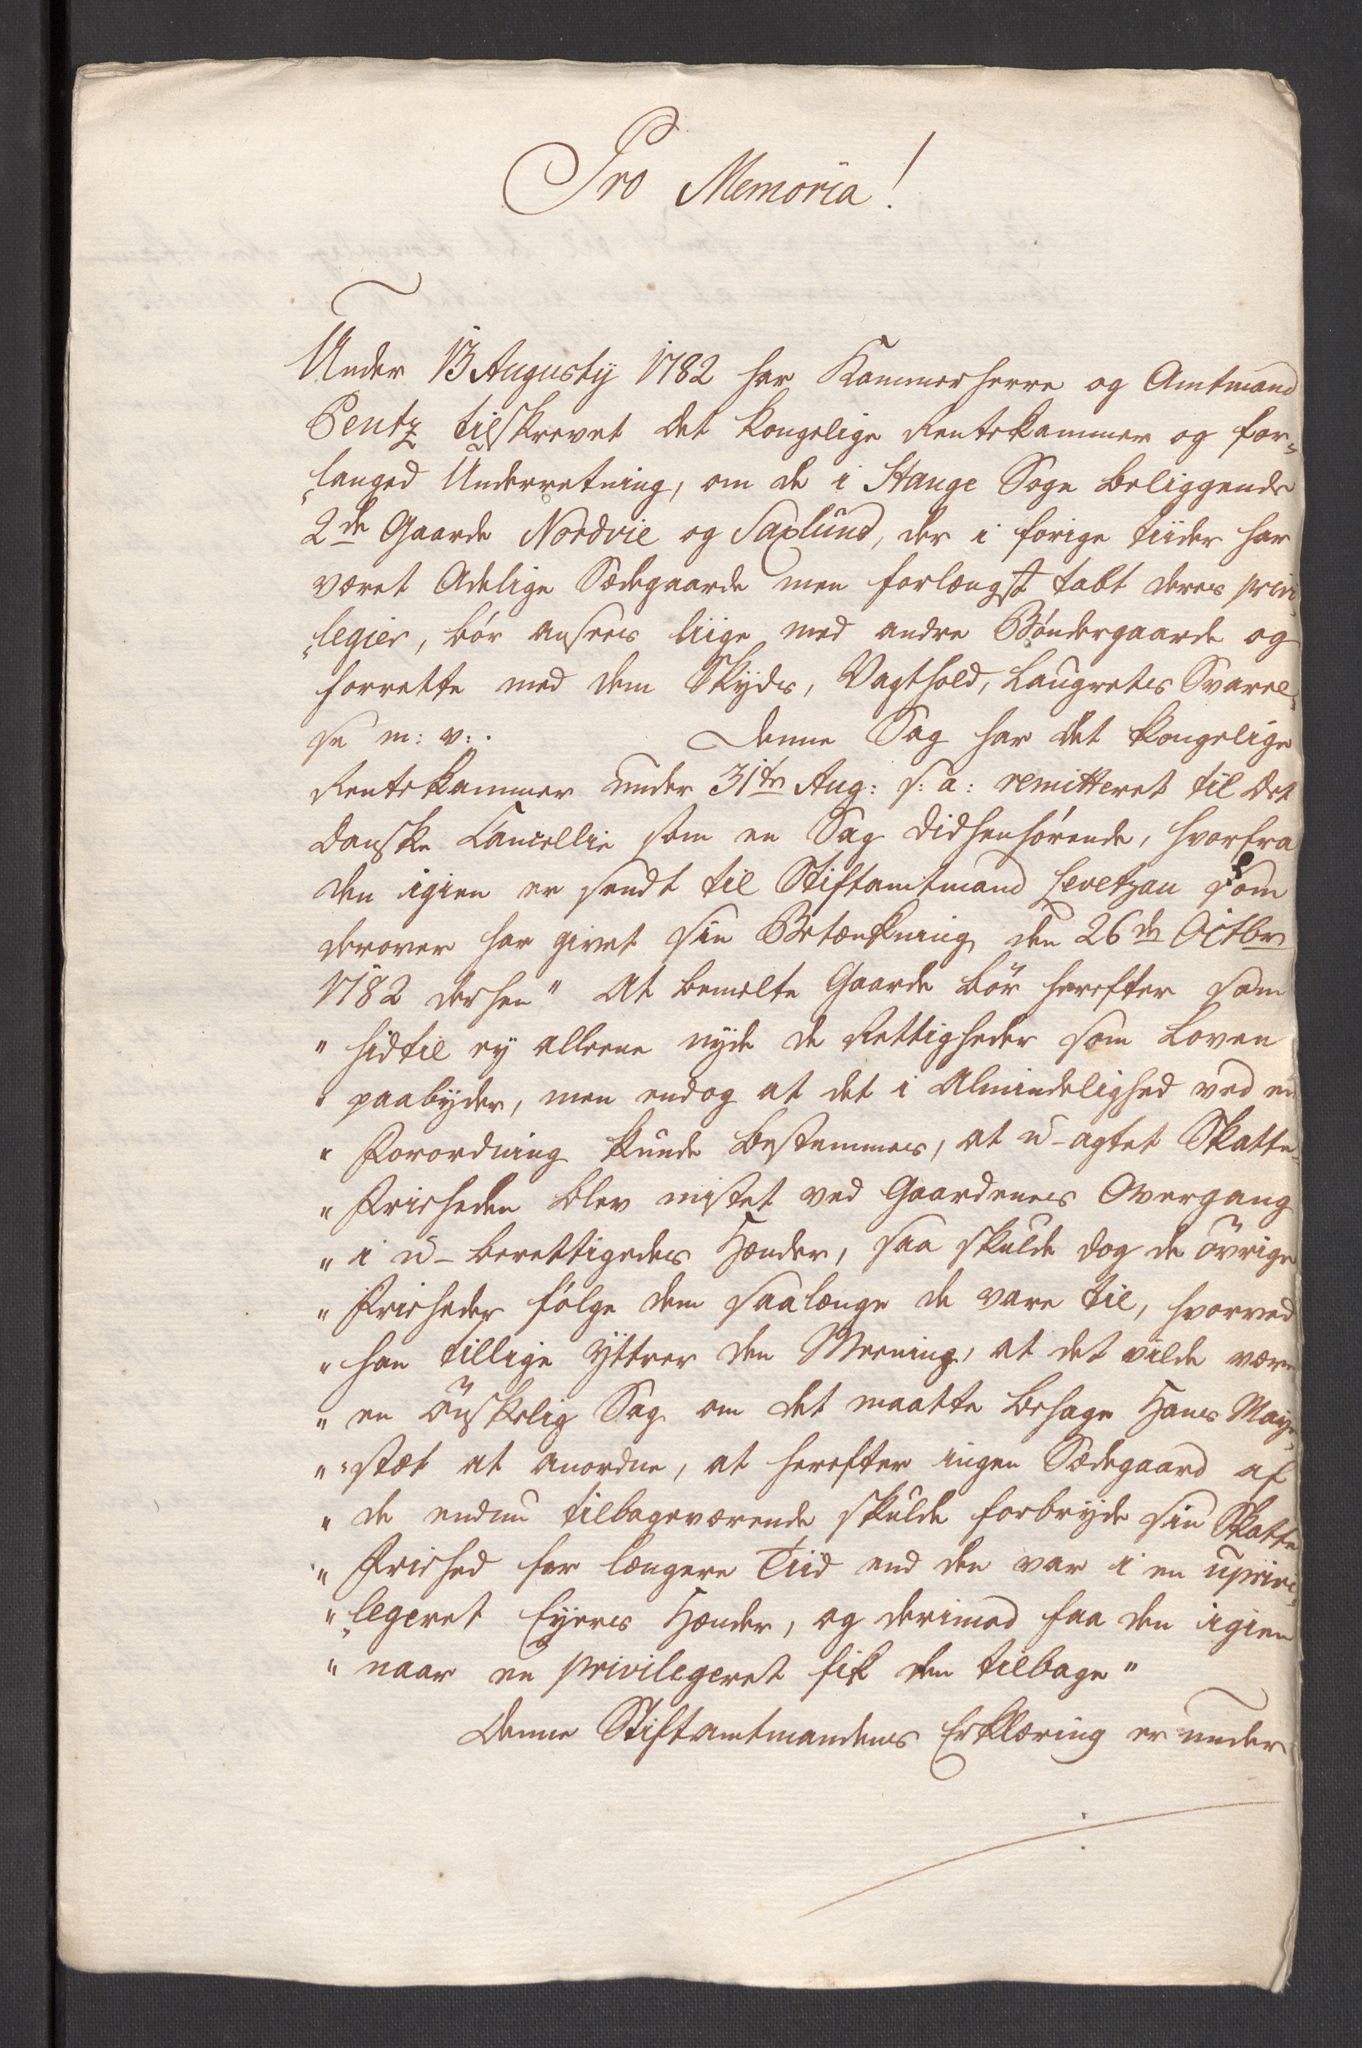 Pro Memoria!
Under 13 Augusty 1782 har Kammerherre og Amtmand
Pentz tilskrevet det kongelige Rentekammer og for-
langed Underretning, om de i Stange Sogn beliggende
2de Gaarde Nordvie og Saxlund, der i forige tiider har
været Adelige Sædegaarde men forlængst tabt deres privi
legier, bør ansees liige med andre Bøndergaarde og
forrette med dem Skyds, Vagthold, Laugrettes Svarel-
se m: v:. Denne Sag har det kongelige
Rentekammer under 31te Aug: s: a: remitteret til det
danske Cancellie som en Sag didhenhørende, hvorfra
den igien er sendt til Stiftamtmand Levetzau som
derover har givet sin Betænkning den 26de Octbr
1782 derhen " At bemelte Gaarde bør herefter som
" hidtil ey alleene nyde de Rettigheder som Loven
" paabyder, men endog at det i Almindelighed ved en
" Forordning kunde bestemmes, at u-agtet Skatte-
" Friheden blev mistet ved Gaardenes Overgang
" i u-berettigedes Hænder, saa skulde dog de øvrige
" Friheder følge dem saalænge de vare til, hvorved
" han tillige yttrer den Meening, at det vilde være
" en ønskelig Sag om det maatte behage Hans Maye
" stæt at anordne, at herefter ingen Sædegaard af
" de endnu tilbageværende skulde forbryde sin Skatte
" Frihed for længere Tiid end den var i en uprivi-
" legeret Eyeres Hænder, og derimod faa den igien
" naar en privilegeret fik den tilbage"
Denne Stiftamtmandens Erklæring er under